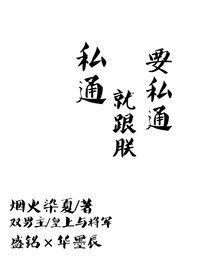 要私通
就跟朕
私通
烟火染夏/著
双男主/皇上与将军
盛铭×华墨辰